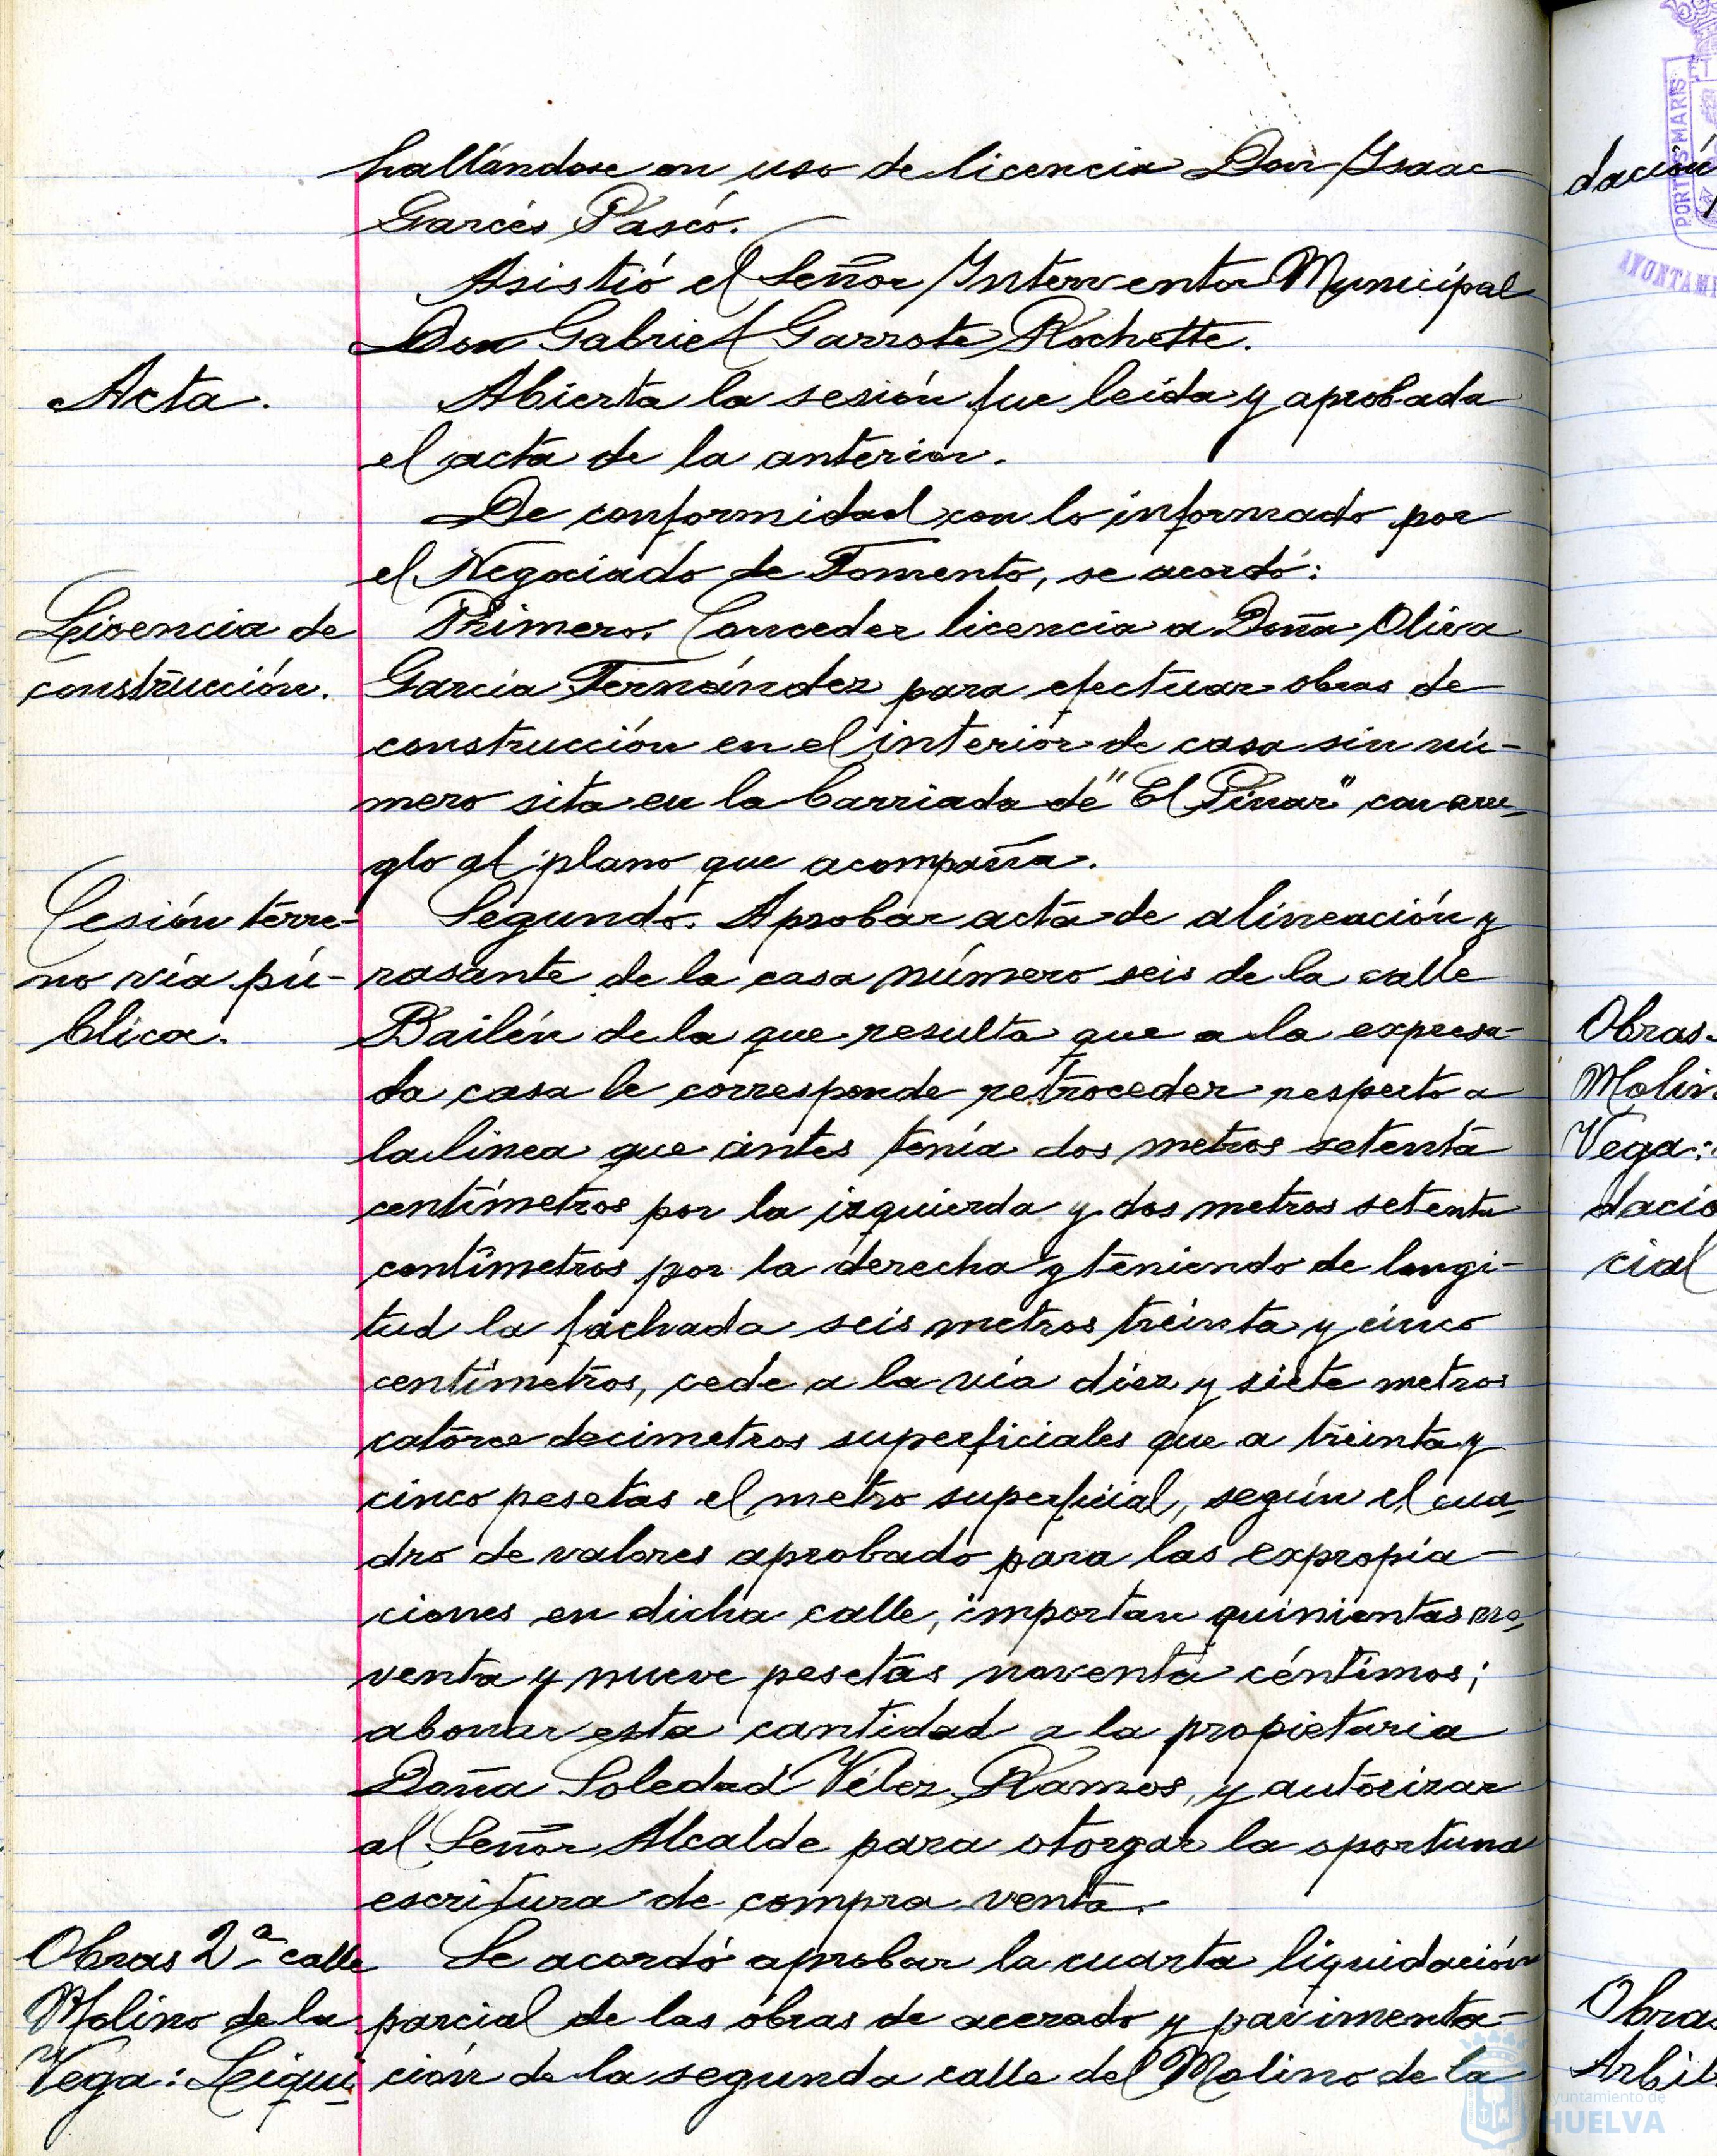 hallándose en uso de licencia Don Isaac
Garcés Pascó.
Asistió el Señor Interventor Municipal
Don Gabriel Garrote Rochette.
Acta.
Abierta la sesión fue leida y aprobada
el acta de la anterior.
De conformidad con lo informado por
el Negociado de Fomento, se acordó:
Licencia de
construcción.
Primero. Conceder licencia a Doña Oliva
García Fernández para efectuar obras de
construcción en el interior de casa sin nú-
mero sita en la barriada de "El Pinar" con arre-
glo al plano que acompaña.
Cesión terre-
no vía pú-
blica.
Segundo. Aprobar acta de alineación y
rasante de la casa número seis de la calle
Bailén de la que resulta que a la expresa-
da casa le corresponde retroceder respecto a
la linea que antes tenía dos metros setenta
centímetros por la izquierda y dos metros setenta
centímetros por la derecha y teniendo de longi-
tud la fachada seis metros treinta y cinco
centímetros, cede a la vía diez y siete metros
catorce decimetros superficiales que a treinta y
cinco pesetas el metro superficial, según el cua-
dro de valores aprobado para las expropia-
ciones en dicha calle, importan quinientas no-
venta y nueve pesetas noventa céntimos;
abonar esta cantidad a la propietaria
Doña Soledad Vélez Ramos, y autorizar
al Señor Alcalde para otorgar la oportuna
escritura de compra venta.
Obras 2ª calle
Molino de la
Vega: Liqui-
Se acordó aprobar la cuarta liquidación
parcial de las obras de acerado y pavimenta-
ción de la segunda calle del Molino de la
dación
Obras
Molin
Vega:
dació
cial
Obras
Arbil
PORTUS MARIS
ET
AYUNTAMI
Ayuntamiento de
HUELVA